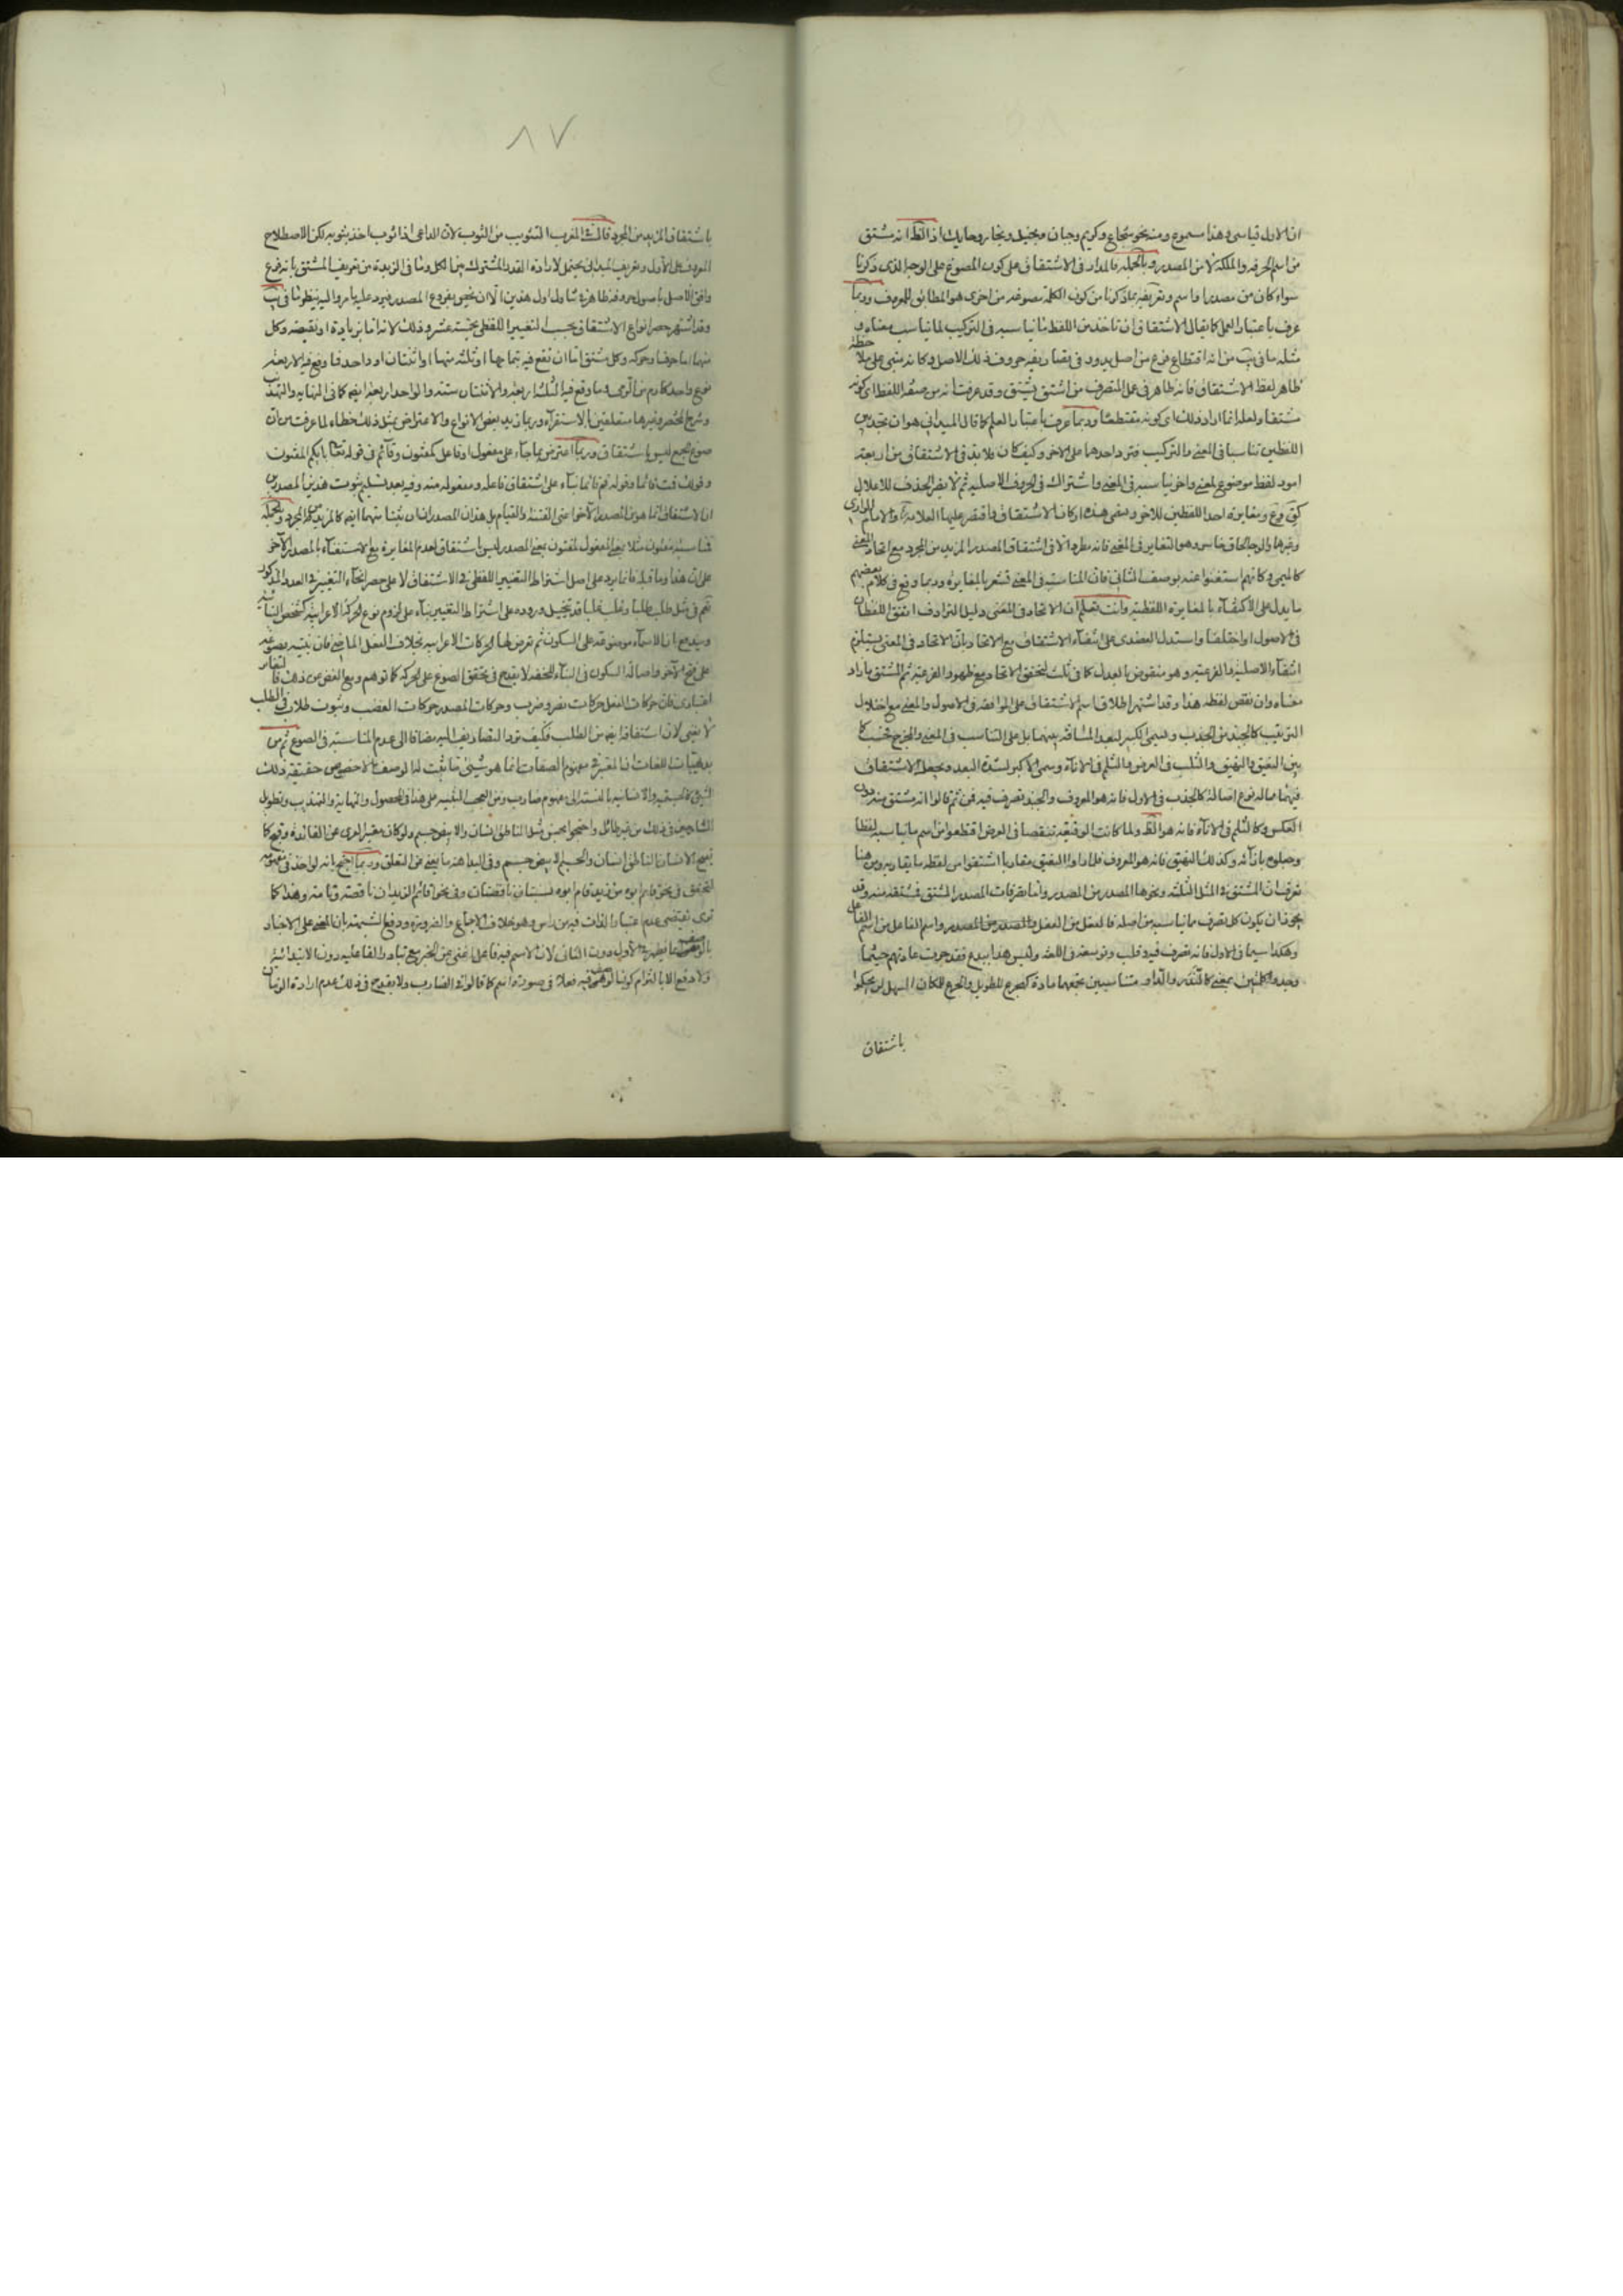 ان الاول قياسى وهذا مسموع ومنه نحو شجاع وكريم وجبان وبخيل ونجار وحايك اذ الظ انه مشتق
من اسم الحرفه والملكة لا من المصدر وبالجمله فالمدار فى الاشتقاق على كون المصوغ على الوجه الذى ذكرنا
سواء كان من مصدر او اسم وتعريفه بما ذكرنا من كون الكلمة مصوغه من اخرى هو المطابق للمعروف وربما
عرف باعتبار العمل كما يقال الاشتقاق ان تاخذ من اللفظ ما يناسبه فى التركيب لما يناسب معناه و
مثله ما فى يب من انه اقتطاع فرع من اصل يدور فى تصاريفه حروف ذلك الاصل وكانه مبنى على ملاحظة
ظاهر لفظ الاشتقاق فانه ظاهر فى عمل المتصرف من اشتق يشتق وقد عرفت انه من صفة اللفظ اى كونه
مشتقا ولعله انما اراد ذلك اى كونه مقتطعا وربما عرف باعتبار العلم كما قال الميدانى هو ان تجد بين
اللفظين تناسبا فى المعنى والتركيب فترد احدهما على الاخر وكيف كان فلا بد فى الاشتقاق من اربعة
امور لفظ موضوع لمعنى واخر يناسبه فى المعنى واشتراك فى الحروف الاصلية ثم لا يضر الحذف للاعلال
كق وع ومغايرة احد اللفظين للاخر وهى هذه اركان الاشتقاق واقتصر عليها العلامة والامام الرازى
وغيرها والوجه الحاق خامس وهو التغاير فى المعنى فانه مطرد الا فى اشتقاق المصدر المزيد من المجرد مع اتحاد المعنى
كالميمى وكانهم استغنوا عنه بوصف الثانى فان المناسبة فى المعنى تشعر بالمغايرة وربما وقع فى كلام بعضهم
ما يدل على الاكتفاء بالمغايرة اللفظية وانت تعلم ان الاتحاد فى المعنى دليل الترادف اتفق اللفظان
فى الاصول او اختلفا واستدل العضدى على انتفاء الاشتقاق مع الاتحاد بان الاتحاد فى المعنى يستلزم
انتفاء الاصلية والفرعية وهو منقوض بالعدل كما فى ثلث لتحقق الاتحاد مع ظهور الفرعية ثم المشتق ما زاد
معناه وان نقص لفظه هذا وقد اشتهر اطلاق اسم الاشتقاق على الموافقة فى الاصول والمعنى مع اختلال
الترتيب كالجبذ من الجذب ويسمى الكبير لبعد المسافة بينهما بل على التناسب فى المعنى والمخرج فحسب كما
بين النعيق والنهيق والثلب فى العرض والثلم فى الاناء ويسمى الاكبر لشدة البعد ويجعل الاشتقاق
فيهما مما له نوع اصالة كالجذب فى الاول فانه هو المعروف والجبذ تصرف فيه فمن ثم قالوا انه مشتق منه دون
العكس وكالثلم فى الاناء فانه هو الظ ولما كانت الوقيعة تنقصا فى العرض اقتطعوا من اسم ما يناسبه لفظا
وجعلوه بازائه وكذلك النهيق فانه هو المعروف فلما ارادوا النعيق مقاربا اشتقوا من لفظه ما يقاربه ومن هنا
تعرف ان المشتق فى المثل الثلثة ونحوها المصدر من المصدر واما تصرفات المصدر المشتق فمشتقة منه وقد
يجوز ان يكون كل تصرف مما يناسبه من اصله فالفعل من الفعل والمصدر من المصدر واسم الفاعل من اسم الفاعل
وهكذا سيما فى الاول فانه تصرف فيه وقلب وتوسعة فى اللغة وليس هذا ببدع فقد جرت عادتهم حيثما
وجدوا كلمتين بمعنى متناسبين تجمعهما مادة للطويل والجرع للمكان السهل لن يحكموا
باشتقاق
٨٧
باشتقاق المزيد من المجرد قال فى المغرب التثويب من الثوب لان الداعى اذا ثوب اخذ بثوبه لكن الاصطلاح
المعروف على الاول وتعريف الميدانى يحتمل لارادة القدر المشترك بين الكل وما فى الزبدة من تعريف المشتق بانه فرع
وافق الاصل باصول حروفه ظاهر فى تناول اول هذين الا ان نخص بفروع المصدر فيرد عليه ما مر واليه ينظر ما فى يب
وقد اشتهر حصر انواع الاشتقاق بحسب التغيير اللفظى بخمسة عشر وذلك لانه اما بزيادة او نقيصة وكل
منهما اما حرف او حركة وكل مشتق اما ان تقع فيه بتمامها او ثلثة منها او اثنتان او واحدة فما وقع فيه الاربعة
نوع واحد كارم من الرمى وما وقع فيه الثلث اربعة والاثنتان ستة والواحدة اربعة ايضا كما فى النهاية والتهذيب
وشرح المختصر وغيرها متعلقين بالاستقراء وربما زيد بعض الانواع والاعتراض بمثل ذلك خطاء لما عرفت من ان
صوغ الجمع ليس باشتقاق وربما اعترض بما جاء على مفعول او فاعل كمفتون وقائم فى قوله تعالى بايكم المفتون
وقولك قمت قائما وقوله قم قائما بناء على اشتقاق فاعله ومفعوله منه وفيه بعد تسليم ثبوت هذين المصدرين
ان الاشتقاق انما هو من المصدر الاخر اعنى الفتنة والقيام بل هذان المصدران مشتقان منهما ايضا كالمزيد من المجرد وبالجملة
فمناسبة مفتون مثلا بمعنى المفعول لمفتون بمعنى المصدر ليس اشتقاق لعدم المغايرة مع الاستغناء بالمصدر الاخر
على ان هذا وما قبله فانما يرد على اصل اشتراط التغيير اللفظى فى الاشتقاق لا على حصر انحاء التغيير فى العدد المذكور
نعم فى مثل طلب طلبا وغلب غلبا قد يتخيل وروده على اشتراط التغيير بناء على لزوم نوع الحركة الاعرابية كشخص البنائية
ويندفع ان الاسماء موضوعة على السكون ثم تعرض لها الحركات الاعرابية بخلاف الفعل الماضى فان بنيته موضوعة
على فتح الاخر واصالة السكون فى البناء للخفة لا يقدح فى تحقق الصوغ على الحركة كما توهم ومع الغض عن ذلك فالتغاير
اعتبارى فان حركات الفعل حركات نصر وضرب وحركات المصدر حركات الغضب وثبوت طلاب فى الطلب
لا يخفى لان اشتقاقه ايضا من الطلب فكيف ترد التصاريف اليه مضافا الى عدم المناسبة فى الصوغ ثم من
بديهيات اللغات ان المعتبر فى مفهوم الصفات انما هو شىء ما ثبت له الوصف لا خصوص حقيقة ذلك
الشىء كالجسمية والانسانية بالنسبة الى مفهوم ضارب ومن العجب التنبيه على هذا فى المحصول والنهاية والتهذيب وتطويل
الشارحين فى ذلك من غير طائل واحتجوا بحسن مثل الناطق انسان والابيض جسم ولو كان معتبرا لعرى عن الفائدة وقبح كما
يقبح الانسان الناطق انسان والجسم الابيض جسم وفى البداهة ما يغنى عن التعلق وربما احتج بانه لو اخذ فى مفهومه
لتحقق فى نحو قائم ابوه من زيد قام ابوه نسبتان ناقصتان وفى نحو اقائم الزيدان ناقصة وتامة وهذا كما
ترى يقتضى عدم اعتبار الذات فيه من راس وهو خلاف الاجماع والضرورة ودفع الشبهة بان المعنى على الاخبار
بالوصف انما يضر فى الاول دون الثانى لان الاسم فيه فاعل اغنى عن الخبر مع تبادر الفاعلية دون الابتدائية
ولا دفع الا بالتزام كون الوصف فيه فعلا فى صورة اسم كما قالوا فى الضارب ولا يقدح فى ذلك عدم ارادة الزمان